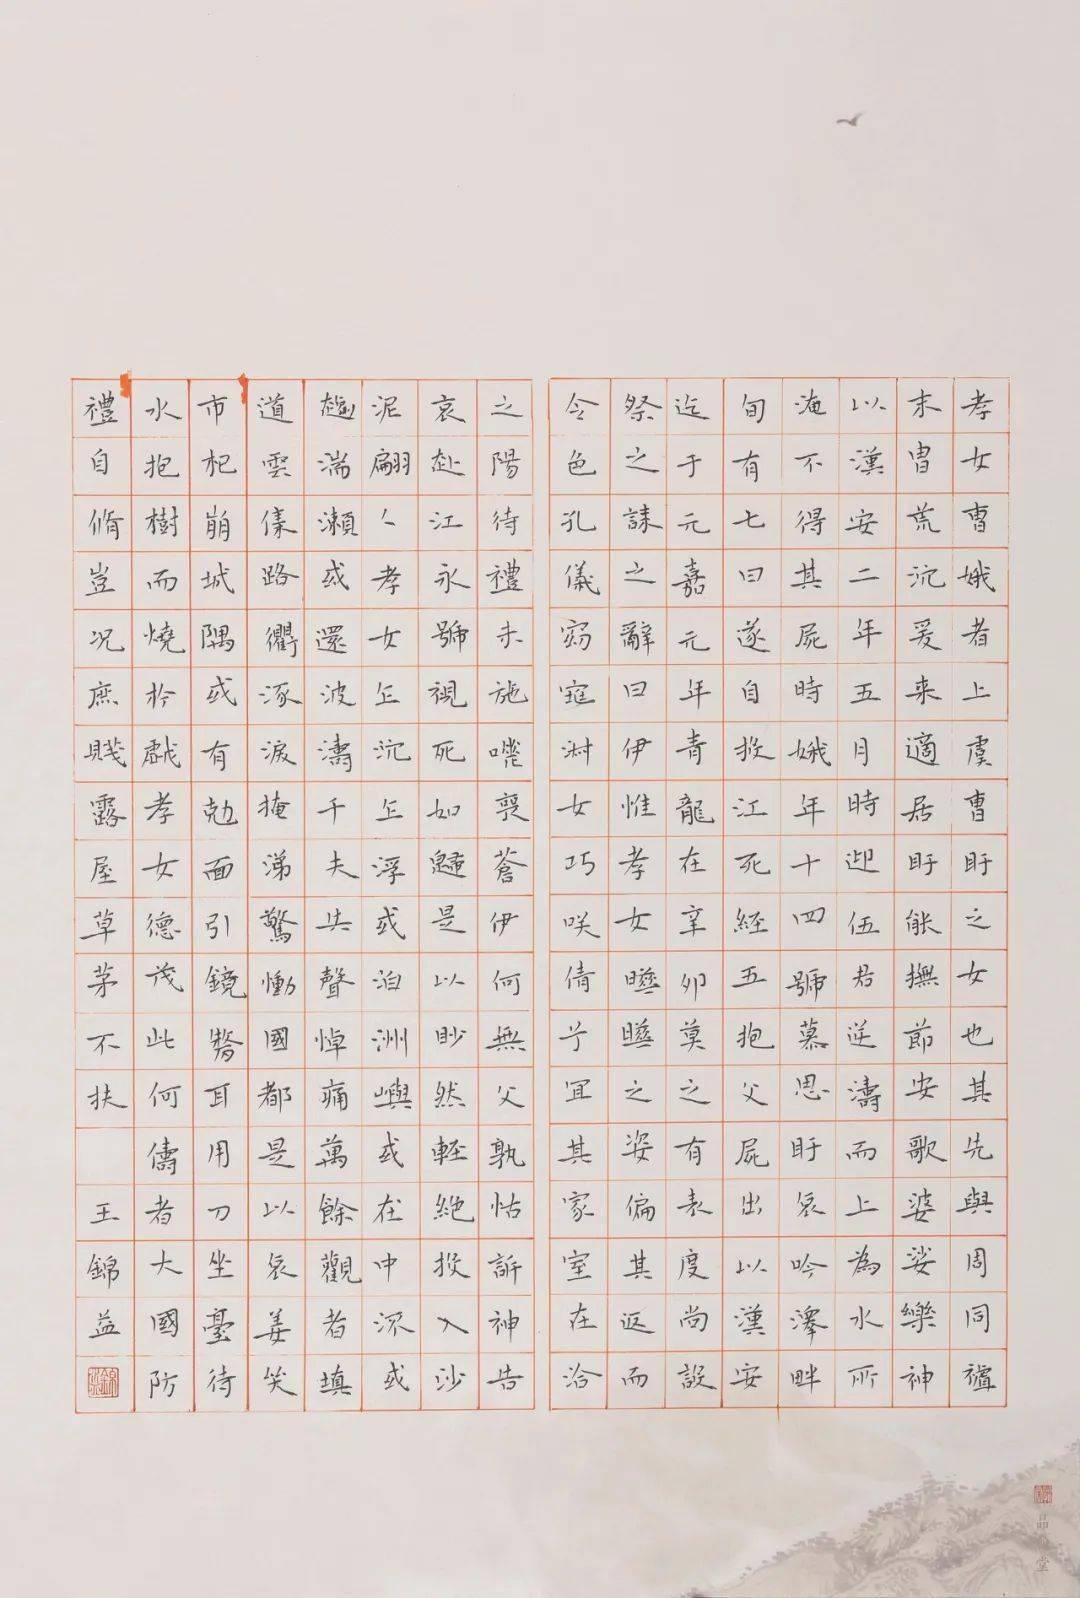 孝女曹娥者上虞曹盱之女也其先與周同禋
末胄荒沉爰来適居盱能撫節安歌婆娑樂神
以漢安二年五月時迎伍君逆濤而上為水所
淹不得其屍時娥年十四號慕思盱哀吟澤畔
旬有七日遂自投江死經五抱父屍出以漢安
迄于元嘉元年青龍在辛卯莫之有表度尚設
祭之誄之辭曰伊惟孝女曄曄之姿偏其返而
令色孔儀窈窕淑女巧咲倩兮宜其家室在洽
之陽待禮未施嗟喪蒼伊何無父孰怙訴神告
哀赴江永號視死如歸是以眇然輕絕投入沙
泥翩〻孝女乍沉乍浮或泊洲嶼或在中流或
趨湍瀨或還波濤千夫共聲悼痛萬餘觀者填
道雲集路衢泳淚掩涕驚慟國都是以哀姜哭
市杞崩城隅或有勉面引鏡剺耳用刀坐臺待
水抱樹而燒扵戲孝女德茂此何儔者大國防
禮自脩豈况庶賤露屋草茅不扶
王錦益